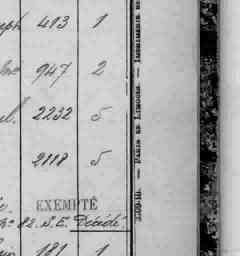 ph 413 1
947 2
l. 2232 5
2118 5
EXEMPTÉ
82. S.E. Décédé
181 1
3509-10. — PARIS ET LIMOGES. — IMPRIMERIE ET